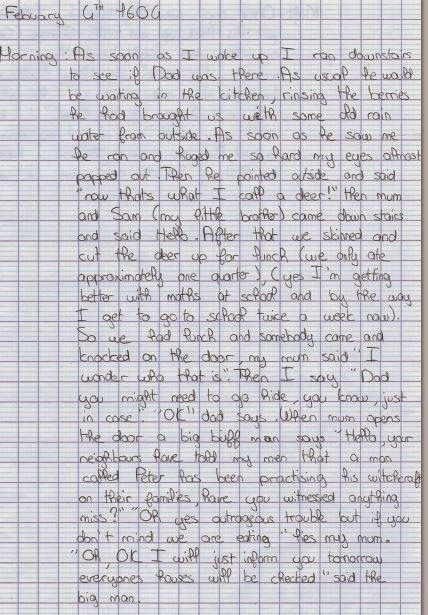 Febuary 6TH 1606
Morning : As soon as I woke up I ran downstairs
to see if Dad was there. As usual he would
be waiting in the kitchen, rinsing the berries
he had brought us with some old rain
water from outside. As soon as he saw me
he ran and huged me so hard my eyes almost
popped out. Then he pointed outside and said
"now thats what I call a deer!" then mum
and Sam (my little brother) came down stairs
and said Hello. After that we skinned and
cut the deer up for lunch (we only ate
approximately one quarter), (yes I'm getting
better with maths at school and by the way
I get to go to school twice a week now).
So we had lunch and somebody came and
knocked on the door, my mum said "I
wonder who that is". Then I say "Dad
you might need to go hide, you know, just
in case". "OK" dad says. When mum opens
the door a big buff man says "Hello, your
neighbours have told my men that a man
called Peter has been practising his witchcraft
on their families, have you witnessed anything
miss?" "Oh yes outrageous trouble but if you
don't mind we are eating" lies my mum.
"Oh, OK I will just inform you tomorrow
everyones houses will be checked" said the
big man.